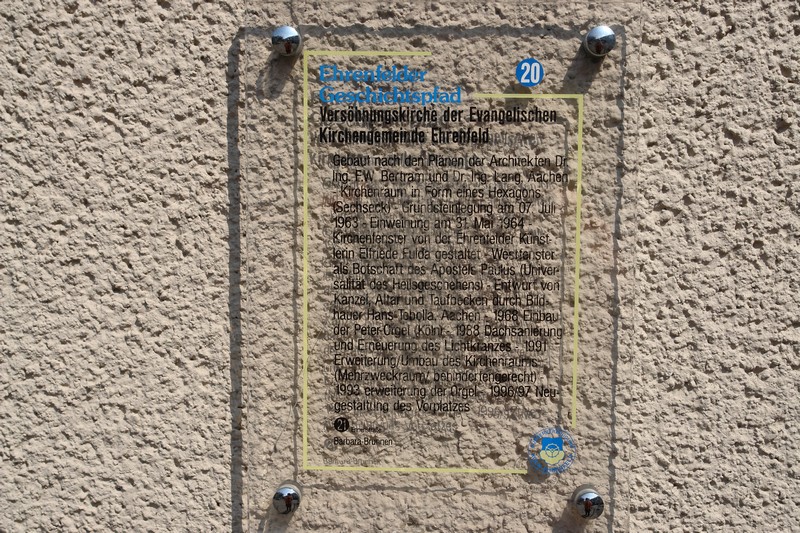 Ehrenfelder
Geschichtspfad
20
Versöhnungskirche der Evangelischen
Kirchengemeinde Ehrenfeld
Gebaut nach den Plänen der Architekten Dr.
Ing. F.W. Bertram und Dr. Ing. Lang, Aachen
- Kirchenraum in Form eines Hexagons
(Sechseck) - Grundsteinlegung am 07. Juli
1963 - Einweihung am 31. Mai 1964
Kirchenfenster von der Ehrenfelder Künst-
lerin Elfriede Fulda gestaltet - Westfenster
als Botschaft des Apostels Paulus (Univer-
salität des Heilsgeschehens) - Entwurf von
Kanzel, Altar und Taufbecken durch Bild-
hauer Hans Tobolla, Aachen - 1968 Einbau
der Peter-Orgel (Köln) - 1988 Dachsanierung
und Erneuerung des Lichtkranzes - 1991
Erweiterung/Umbau des Kirchenraums
(Mehrzweckraum/ behindertengerecht)
1992 erweiterung der Orgel - 1996/97 Neu-
gestaltung des Vorplatzes
21
Barbara-Brunnen